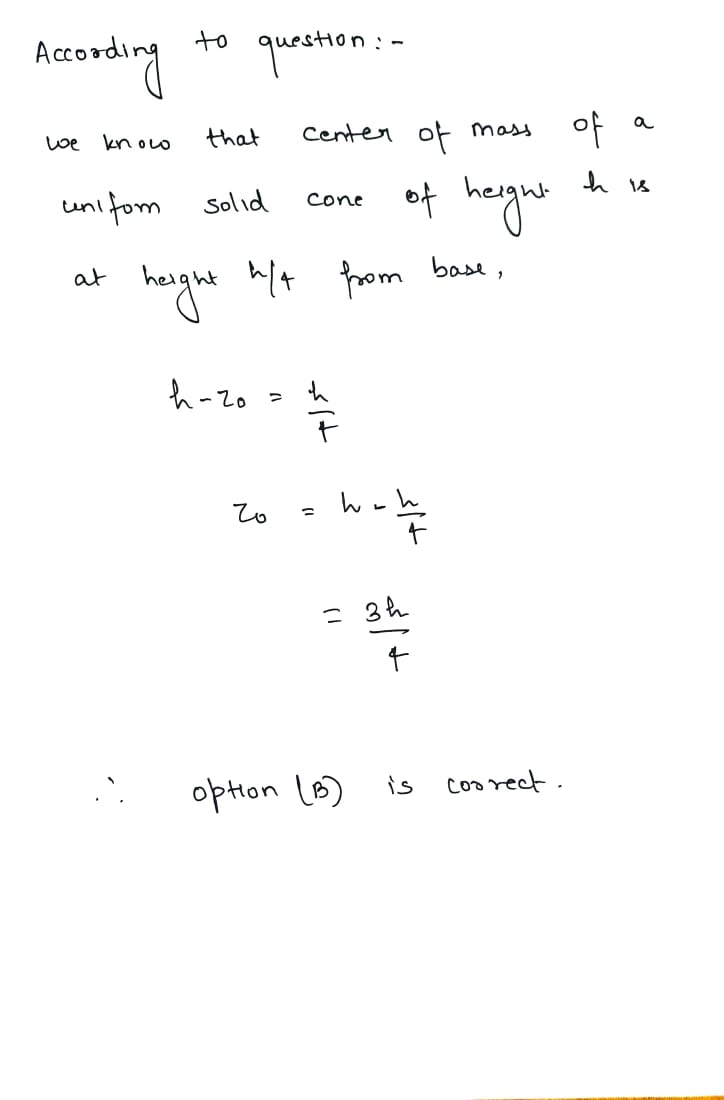 According to question :-
we know that center of mass of a
unifom solid cone of height h is
at height h/4 from base,
h - z0 = h/4
z0 = h - h/4
= 3h/4
∴ option (B) is correct.